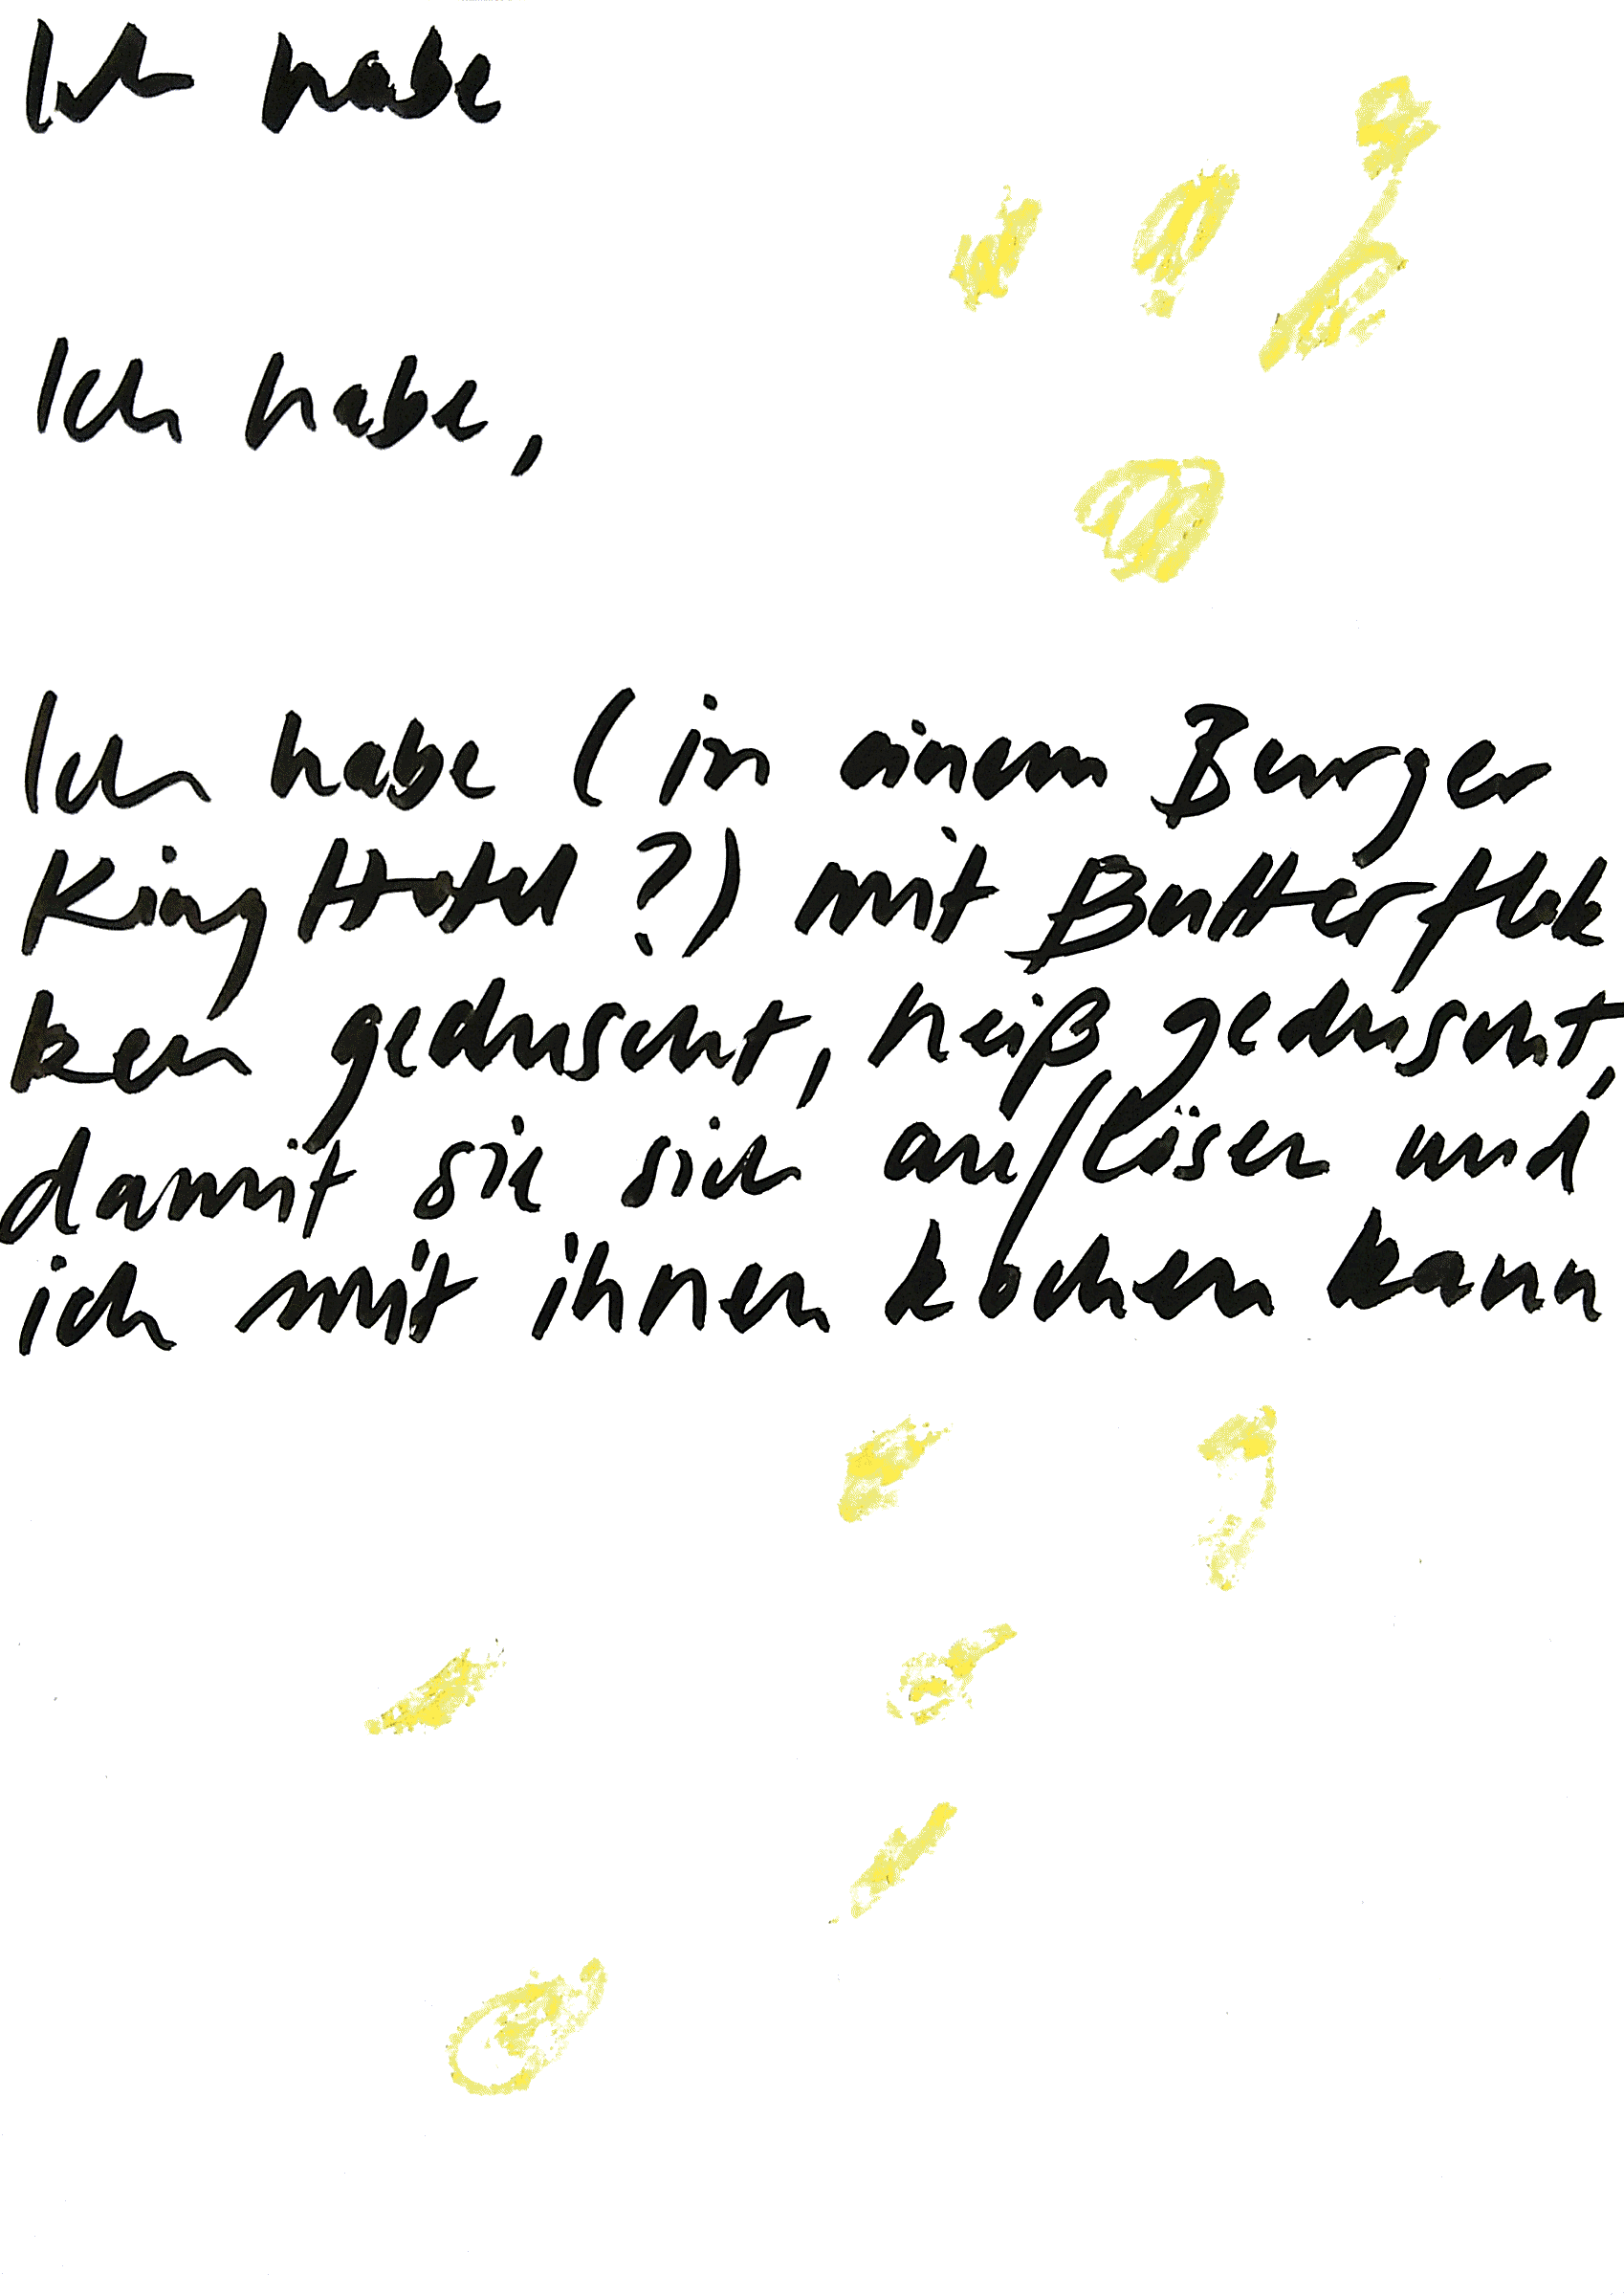 Ich habe
Ich habe,
Ich habe (in einem Burger
King Hotel?) mit Butterflok
ken geduscht, heiß geduscht,
damit sie sich auflösen und
ich mit ihnen kochen kann